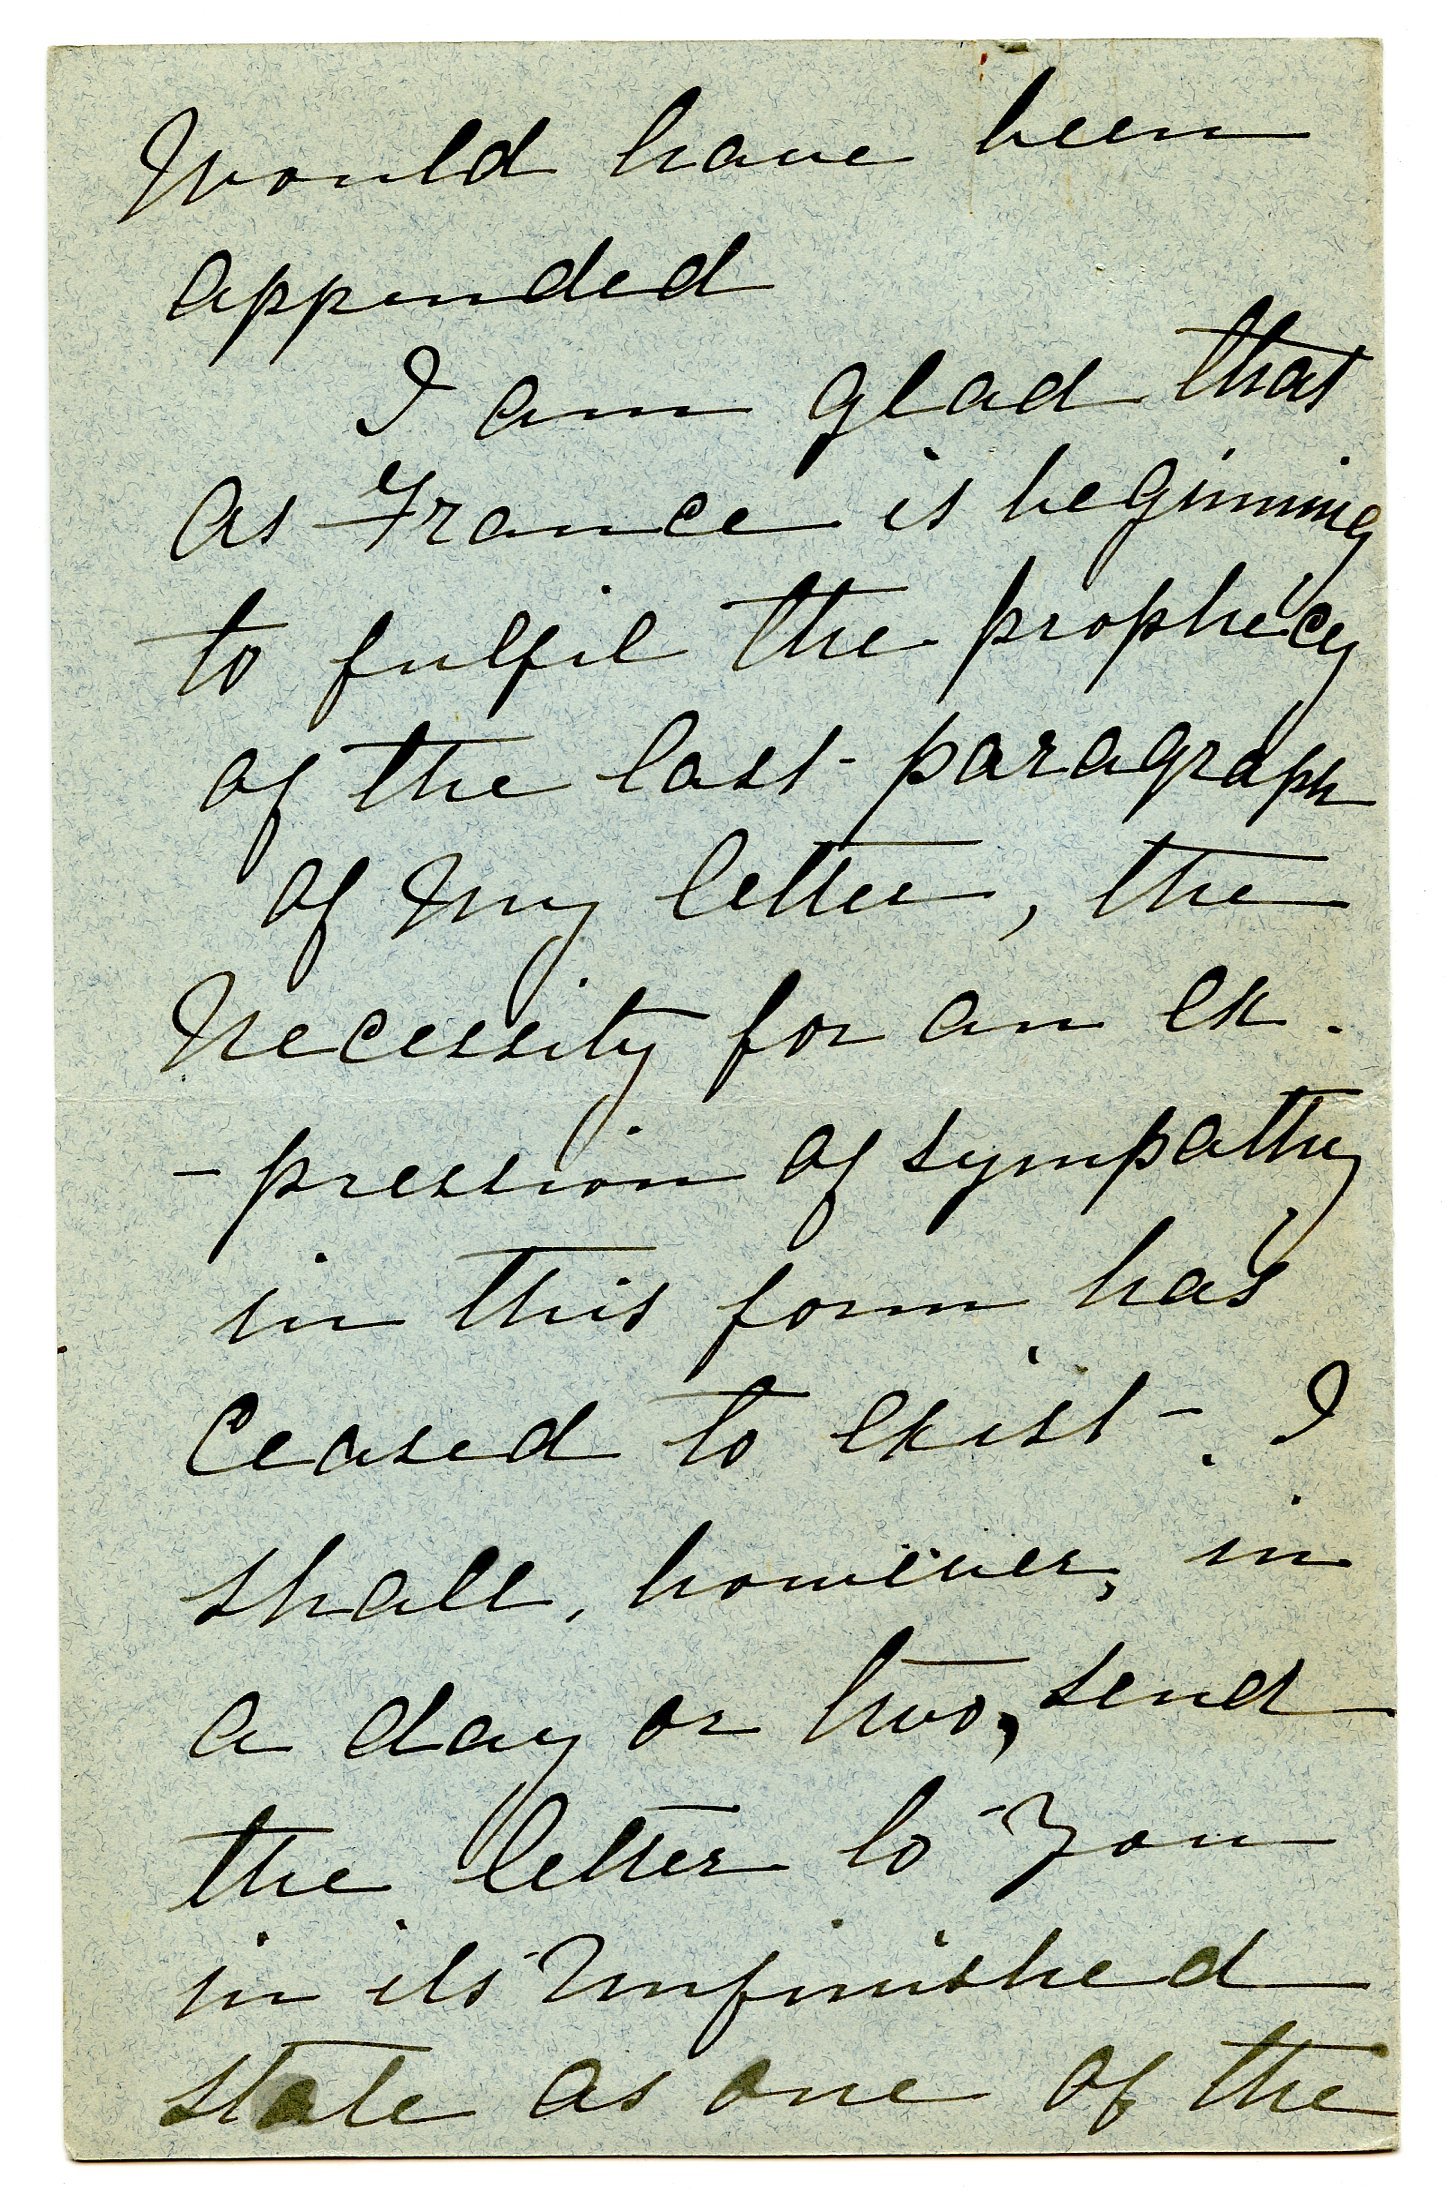 Would have been
appended
I am glad that
as France is beginning
to fulfil the prophecy
of the last paragraph
of my letter, the
necessity for an ex-
-pression of sympathy
in this form has
ceased to exist. I
shall, however, in
a day or two, send
the letter to you
in its unfinished
state as one of the